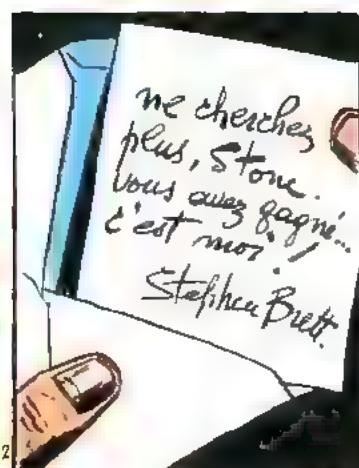 ne cherchez
plus, Stone.
vous avez gagné...
c'est moi !
Stephen Brett.
2